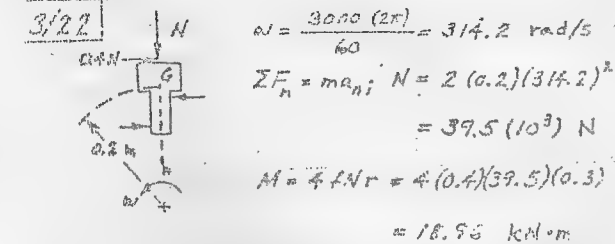 3/22
N
0.4N
G
0.2 m
n
ω
ω = 3000 (2π) / 60 = 314.2 rad/s
ΣFn = man; N = 2 (0.2)(314.2)²
= 39.5 (10³) N
M = 4 fNr = 4 (0.4)(39.5)(0.3)
= 18.95 kN·m